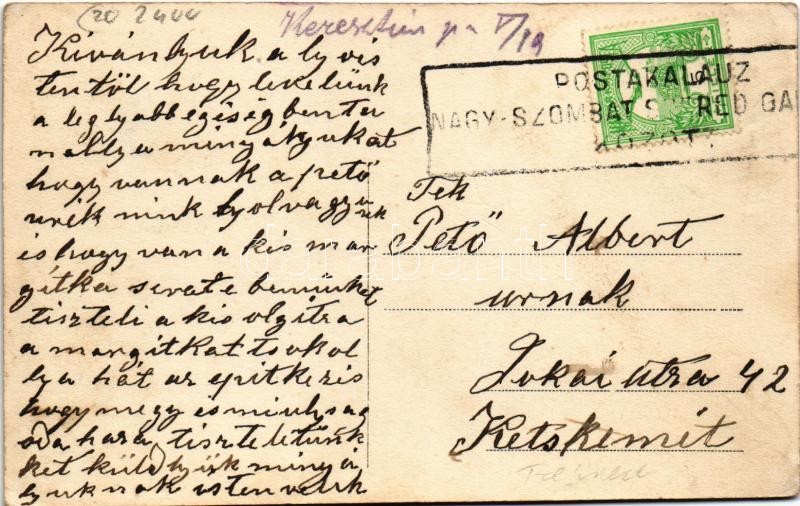 (20 2400
Keresztúri p. V/19
Kívánljuk a ly vis
tentöl hogy levelünk
a leg lyobb egéség ben ta
nallya minyályukat
hogy vannak a pető
urék mink lyol vagyunk
és hogy van a kis mar
gitka serate beminket
tiszteli a kis olgitra
a margitkat tsokol
lya hát az epitkezis
hogy megy és miulysag
oda haza, tiszteletünk
ket küldlyük minyá
lyuknak isten velük
POSTAKALAUZ
NAGY-SZOMBAT SZERED GA
Tek
Pető Albert
urnak
Jokai utza 42
Ketskemét
darabanth